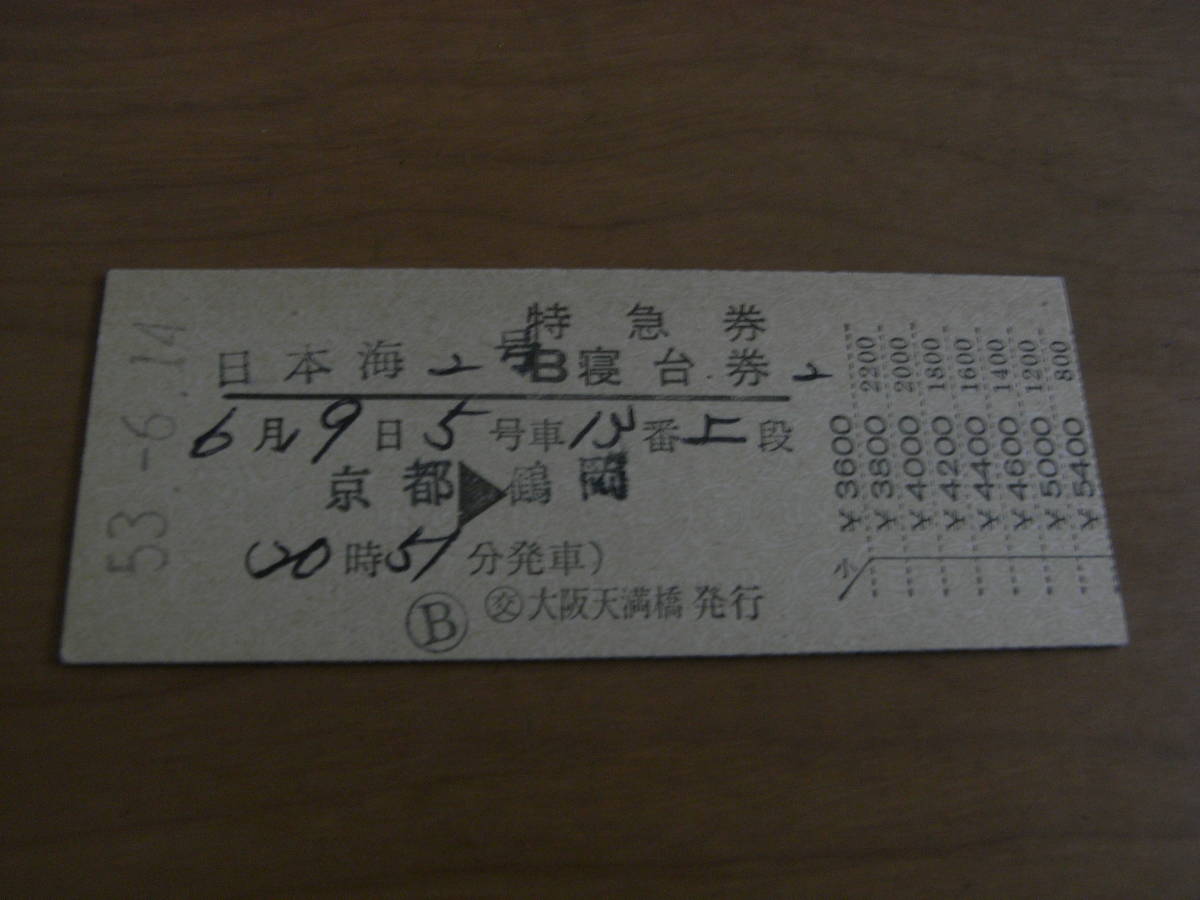 53-6.14
特急券
日本海2号 B寝台券 2
6月19日5号車13番上段
京都▶鶴岡
(20時51分発車)
Ⓑ ㊋大阪天満橋発行
小
¥3600 2200
¥3800 2000
¥4000 1800
¥4200 1600
¥4400 1400
¥4600 1200
¥5000 800
¥5400